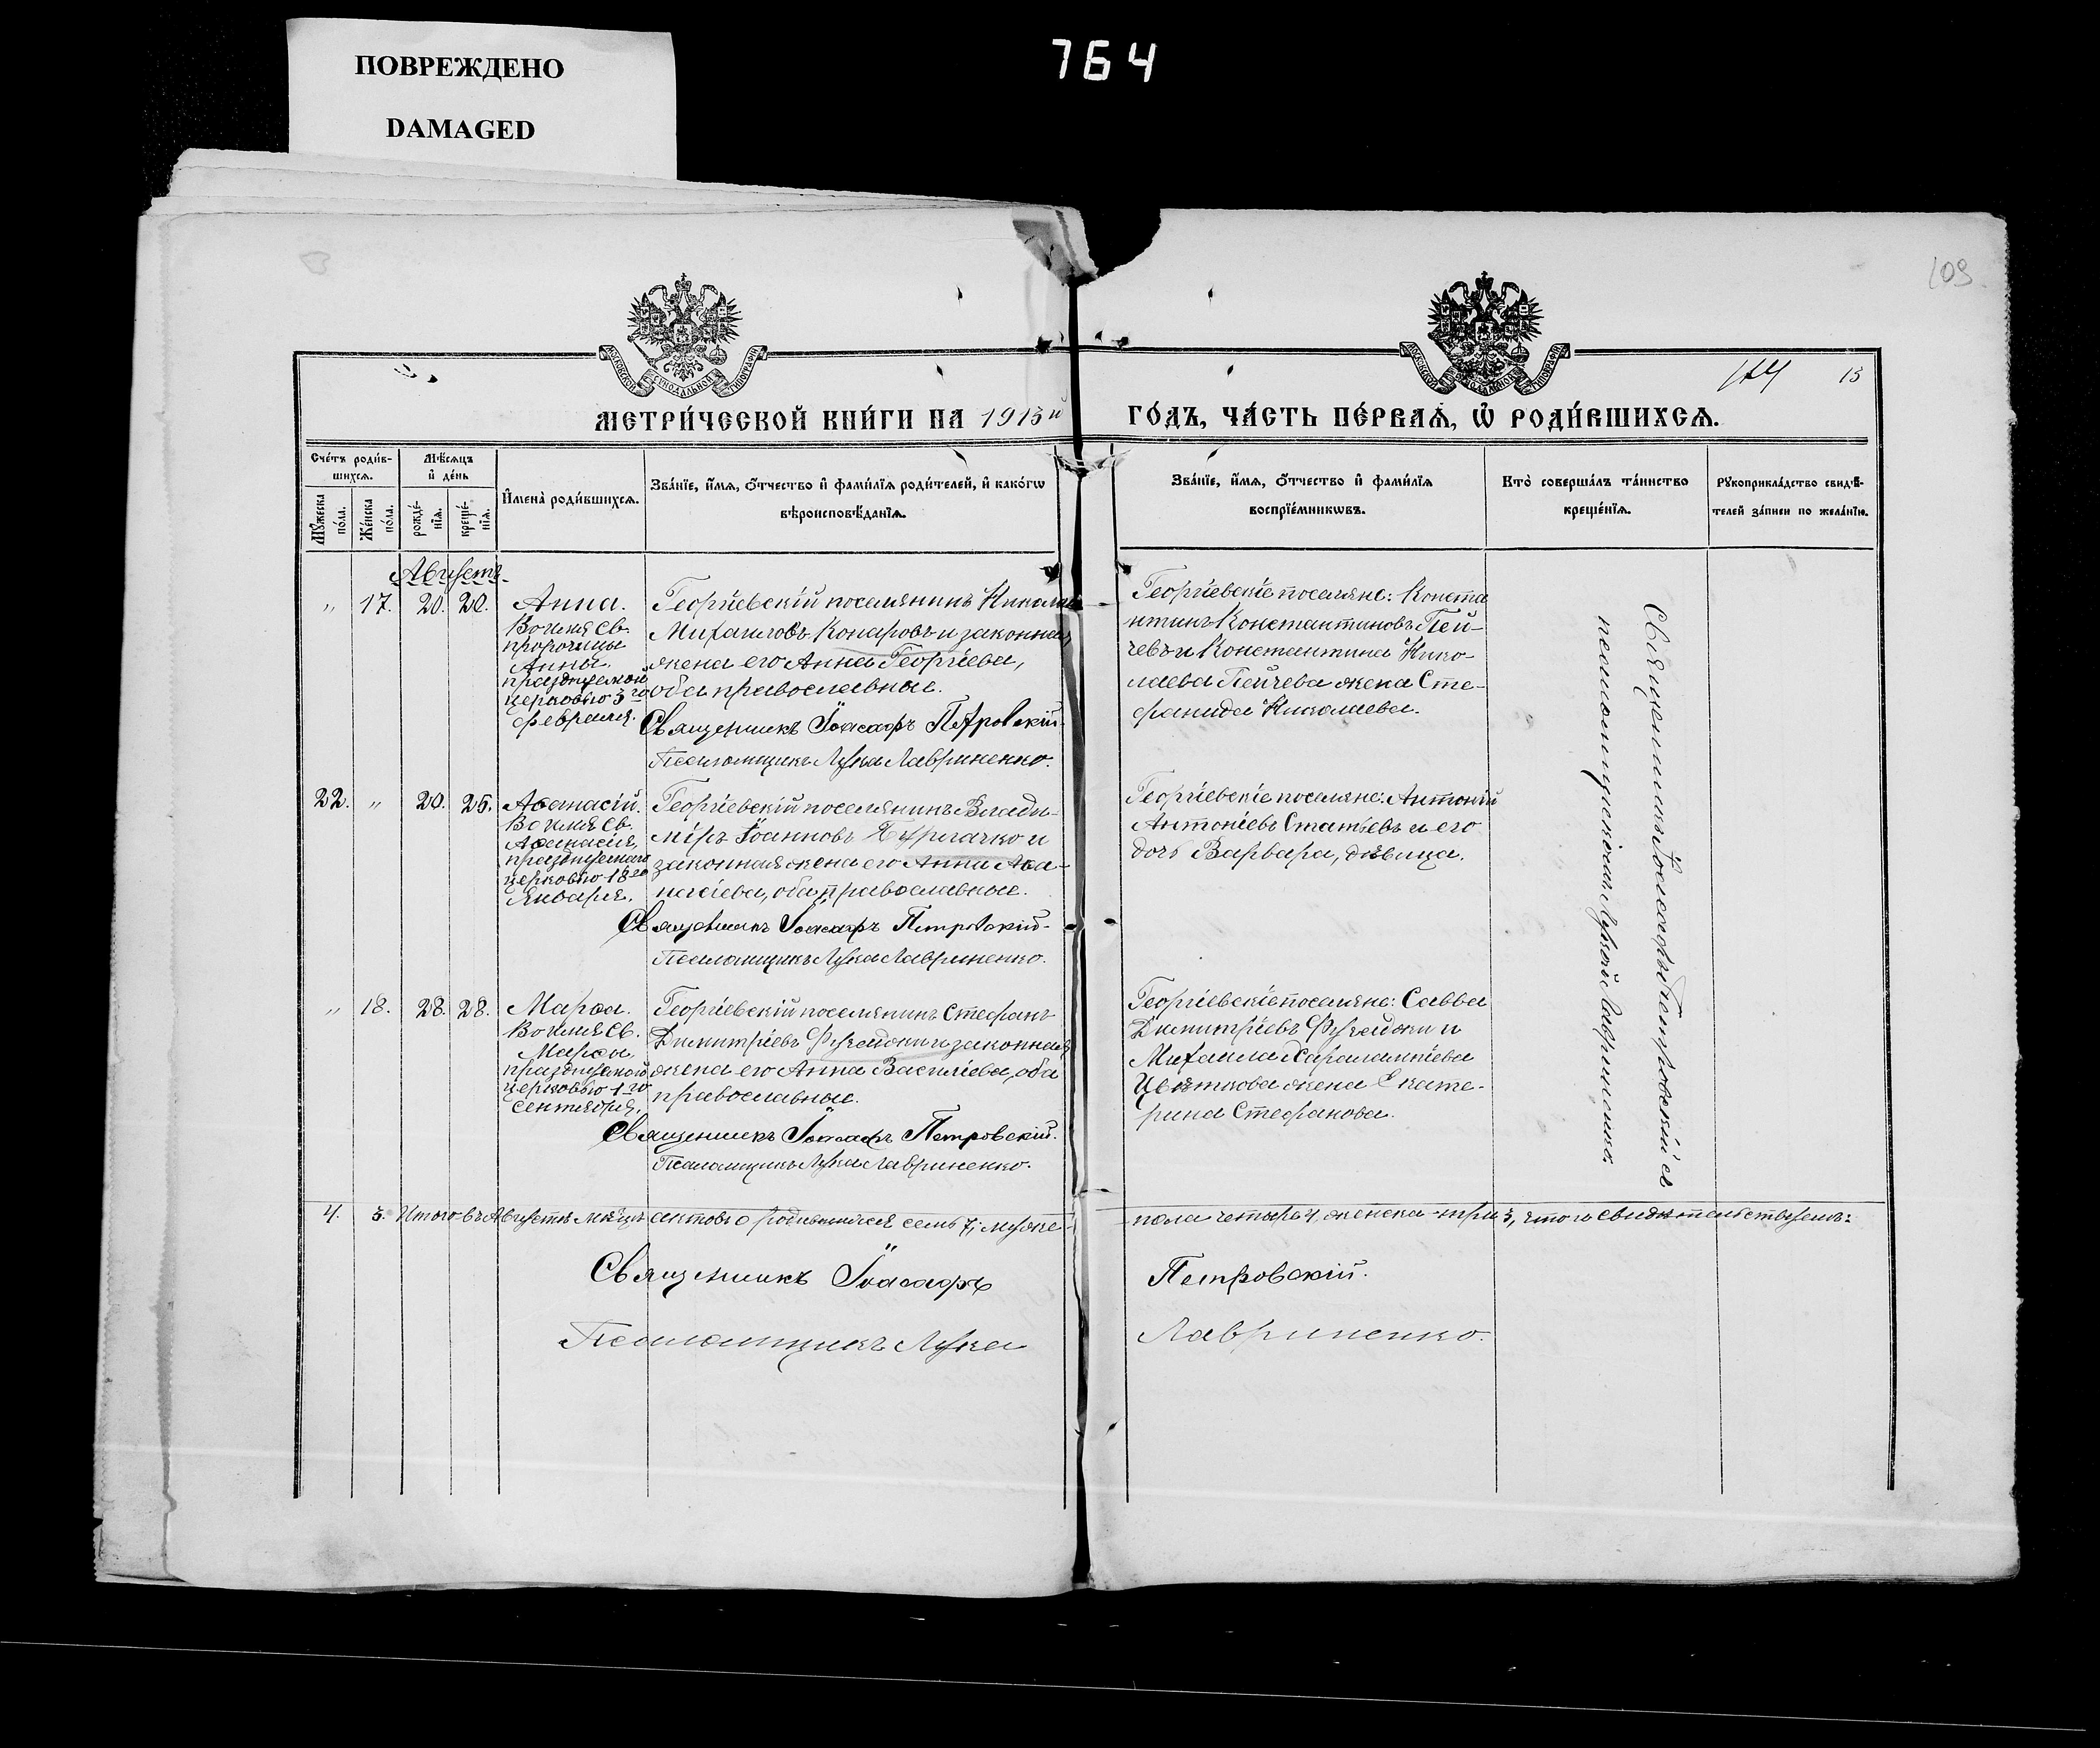 ПОВРЕЖДЕНО
DAMAGED
764
109
МОСКОВСКОЙ СѴНОДАЛЬНОЙ ТИПОГРАФІИ
МОСКОВСКОЙ СѴНОДАЛЬНОЙ ТИПОГРАФІИ
15
МЕТРИ́ЧЕСКОЙ КНИ́ГИ НА 1913й
ГО́ДЪ, ЧА́СТЬ ПЕ́РВАѦ, Ѡ҆ РОДИ́ВШИХСѦ.
Сче́тъ роди́в-
шихсѧ.
Мꙋ́жеска по́ла.
Же́нска по́ла.
Мѣ́сѧцъ
и҆ де́нь
рожде́-нїѧ.
креще́-нїѧ.
И҆мена̀ роди́вшихсѧ.
Зва́нїе, и҆́мѧ, ѻ҆́тчество и҆ фами́лїѧ роди́телей, и҆ како́гѡ
вѣроисповѣ́данїѧ.
Зва́нїе, и҆́мѧ, ѻ҆́тчество и҆ фами́лїѧ
воспрїе́мникѡвъ.
Кто̀ соверша́лъ та́инство
креще́нїѧ.
Рꙋкоприкла́дство свидѣ́-
телей за́писи по жела́нїю.
Августъ.
„ 17. 20. 20.
Анна.
Во имя св.
пророчицы
Анны.
празднуемой
церковью 3го
февраля.
Георгіевскій поселянинъ Николай
Михаиловъ Конаровъ и законная
жена его Анна Георгіева,
оба православные.
Священникъ Іоасафъ Петровскій.
Псаломщикъ Лука Лавриненко.
Георгіевскіе поселяне: Конста
нтинъ Константиновъ Пей-
чевъ и Константина Нико-
лаева Пейчева жена Сте-
фанида Николаева.
Священникъ Іоасафъ Петровскій съ
псаломщикомъ Лукой Лавриненко.
22. „ 20. 25.
Аѳанасій.
Во имя св.
Аѳанасія,
празднуемаго
церковью 18го
Января.
Георгіевскій поселянинъ Влади-
міръ Іоанновъ
законная жена его Анна Аѳа-
насіева, оба православные.
Священникъ Іоасафъ Петровскій.
Псаломщикъ Лука Лавриненко.
Георгіевскіе поселяне: Антоній
Антоніевъ Статьевъ и его
дочь Варвара, дѣвица.
„ 18. 28. 28.
Марѳа.
Во имя Св.
Марѳы
празднуемой
церковью 1го
сентября.
Георгіевскій поселянинъ Стефанъ
Димитріевъ Фузеджи и законная
жена его Анна Василіева, оба
православные.
Священникъ Іоасафъ Петровскій.
Псаломщикъ Лука Лавриненко.
Георгіевскіе поселяне: Савва
Димитріевъ Фузеджи и
Михаила Харалампіева
Цвѣткова жена Екате-
рина Стефанова.
4. 3. Итого въ Августѣ мѣсяцѣ актовъ о родившихся семь 7; муже-
пола четыре 4, женска - три 3, что и свидѣтельствуемъ:
Священникъ Іоасафъ
Петровскій.
Псаломщикъ Лука
Лавриненко.